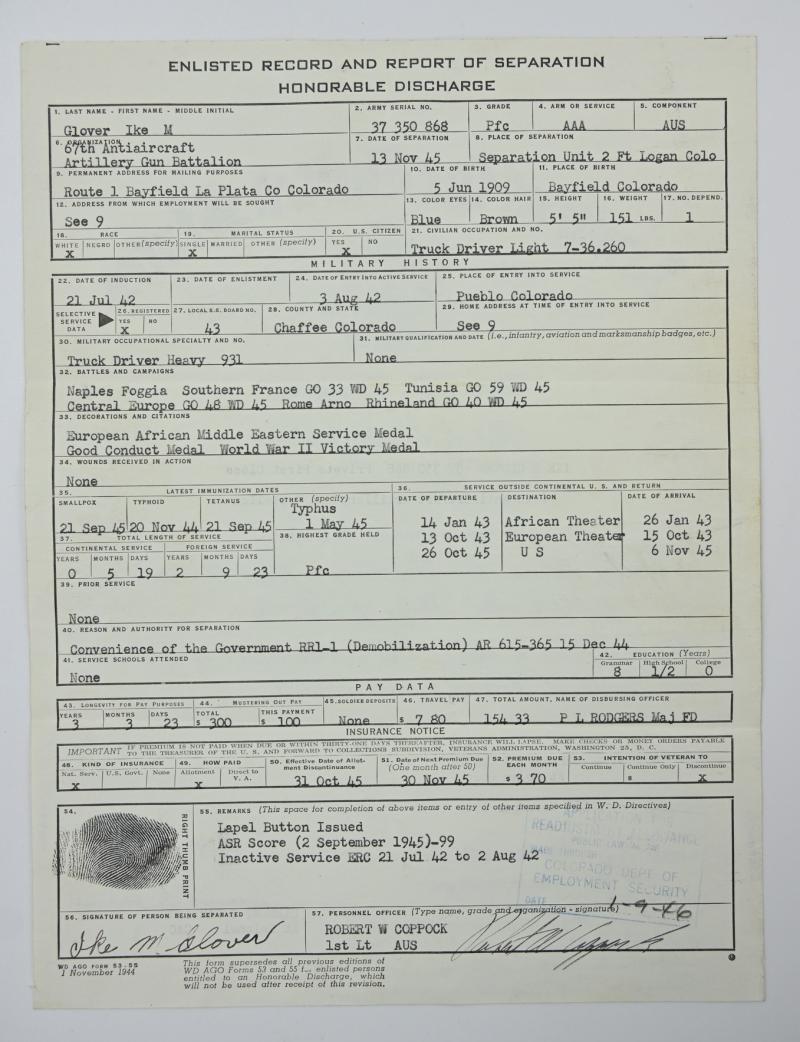 ENLISTED RECORD AND REPORT OF SEPARATION
HONORABLE DISCHARGE
1. LAST NAME - FIRST NAME - MIDDLE INITIAL
Glover Ike M
2. ARMY SERIAL NO.
37 350 868
3. GRADE
Pfc
4. ARM OR SERVICE
AAA
5. COMPONENT
AUS
6. ORGANIZATION
67th Antiaircraft
Artillery Gun Battalion
7. DATE OF SEPARATION
13 Nov 45
8. PLACE OF SEPARATION
Separation Unit 2 Ft Logan Colo
9. PERMANENT ADDRESS FOR MAILING PURPOSES
Route 1 Bayfield La Plata Co Colorado
10. DATE OF BIRTH
5 Jun 1909
11. PLACE OF BIRTH
Bayfield Colorado
12. ADDRESS FROM WHICH EMPLOYMENT WILL BE SOUGHT
See 9
13. COLOR EYES
Blue
14. COLOR HAIR
Brown
15. HEIGHT
5' 5"
16. WEIGHT
151 LBS.
17. NO. DEPEND.
1
18. RACE
WHITE NEGRO OTHER (specify)
X
19. MARITAL STATUS
SINGLE MARRIED OTHER (specify)
X
20. U.S. CITIZEN
YES NO
X
21. CIVILIAN OCCUPATION AND NO.
Truck Driver Light 7-36.260
MILITARY HISTORY
22. DATE OF INDUCTION
21 Jul 42
23. DATE OF ENLISTMENT
24. DATE OF ENTRY INTO ACTIVE SERVICE
3 Aug 42
25. PLACE OF ENTRY INTO SERVICE
Pueblo Colorado
SELECTIVE SERVICE DATA
26. REGISTERED
YES NO
X
27. LOCAL S.S. BOARD NO.
43
28. COUNTY AND STATE
Chaffee Colorado
29. HOME ADDRESS AT TIME OF ENTRY INTO SERVICE
See 9
30. MILITARY OCCUPATIONAL SPECIALTY AND NO.
Truck Driver Heavy 931
31. MILITARY QUALIFICATION AND DATE (i.e., infantry, aviation and marksmanship badges, etc.)
None
32. BATTLES AND CAMPAIGNS
Naples Foggia Southern France GO 33 WD 45 Tunisia GO 59 WD 45
Central Europe GO 48 WD 45 Rome Arno Rhineland GO 40 WD 45
33. DECORATIONS AND CITATIONS
European African Middle Eastern Service Medal
Good Conduct Medal World War II Victory Medal
34. WOUNDS RECEIVED IN ACTION
None
35. LATEST IMMUNIZATION DATES
SMALLPOX TYPHOID TETANUS OTHER (specify)
Typhus
21 Sep 45 20 Nov 44 21 Sep 45 1 May 45
36. SERVICE OUTSIDE CONTINENTAL U. S. AND RETURN
DATE OF DEPARTURE DESTINATION DATE OF ARRIVAL
14 Jan 43 African Theater 26 Jan 43
13 Oct 43 European Theater 15 Oct 43
26 Oct 45 U S 6 Nov 45
37. TOTAL LENGTH OF SERVICE
CONTINENTAL SERVICE FOREIGN SERVICE
YEARS MONTHS DAYS YEARS MONTHS DAYS
0 5 19 2 9 23
38. HIGHEST GRADE HELD
Pfc
39. PRIOR SERVICE
None
40. REASON AND AUTHORITY FOR SEPARATION
Convenience of the Government RR1-1 (Demobilization) AR 615-365 15 Dec 44
41. SERVICE SCHOOLS ATTENDED
None
42. EDUCATION (Years)
Grammar High School College
8 1/2 0
PAY DATA
43. LONGEVITY FOR PAY PURPOSES
YEARS MONTHS DAYS
3 3 23
44. MUSTERING OUT PAY
TOTAL THIS PAYMENT
$ 300 $ 100
45. SOLDIER DEPOSITS
None
46. TRAVEL PAY
$ 7 80
47. TOTAL AMOUNT, NAME OF DISBURSING OFFICER
154 33 P L RODGERS Maj FD
INSURANCE NOTICE
IMPORTANT IF PREMIUM IS NOT PAID WHEN DUE OR WITHIN THIRTY-ONE DAYS THEREAFTER, INSURANCE WILL LAPSE. MAKE CHECKS OR MONEY ORDERS PAYABLE
TO THE TREASURER OF THE U. S. AND FORWARD TO COLLECTIONS SUBDIVISION, VETERANS ADMINISTRATION, WASHINGTON 25, D. C.
48. KIND OF INSURANCE
Nat. Serv. U.S. Govt. None
X
49. HOW PAID
Allotment Direct to V. A.
X
50. Effective Date of Allotment Discontinuance
31 Oct 45
51. Date of Next Premium Due (One month after 50)
30 Nov 45
52. PREMIUM DUE EACH MONTH
$ 3 70
53. INTENTION OF VETERAN TO
Continue Continue Only Discontinue
$ X
54.
RIGHT THUMB PRINT
55. REMARKS (This space for completion of above items or entry of other items specified in W. D. Directives)
Lapel Button Issued
ASR Score (2 September 1945)-99
Inactive Service ERC 21 Jul 42 to 2 Aug 42
COLORADO DEPT OF
EMPLOYMENT SECURITY
DATE 1-9-46
56. SIGNATURE OF PERSON BEING SEPARATED
Ike M. Glover
57. PERSONNEL OFFICER (Type name, grade and organization - signature)
ROBERT W COPPOCK
1st Lt AUS
Robert W Coppock
WD AGO FORM 53-55
1 November 1944
This form supersedes all previous editions of
WD AGO Forms 53 and 55 enlisted persons
entitled to an Honorable Discharge, which
will not be used after receipt of this revision.